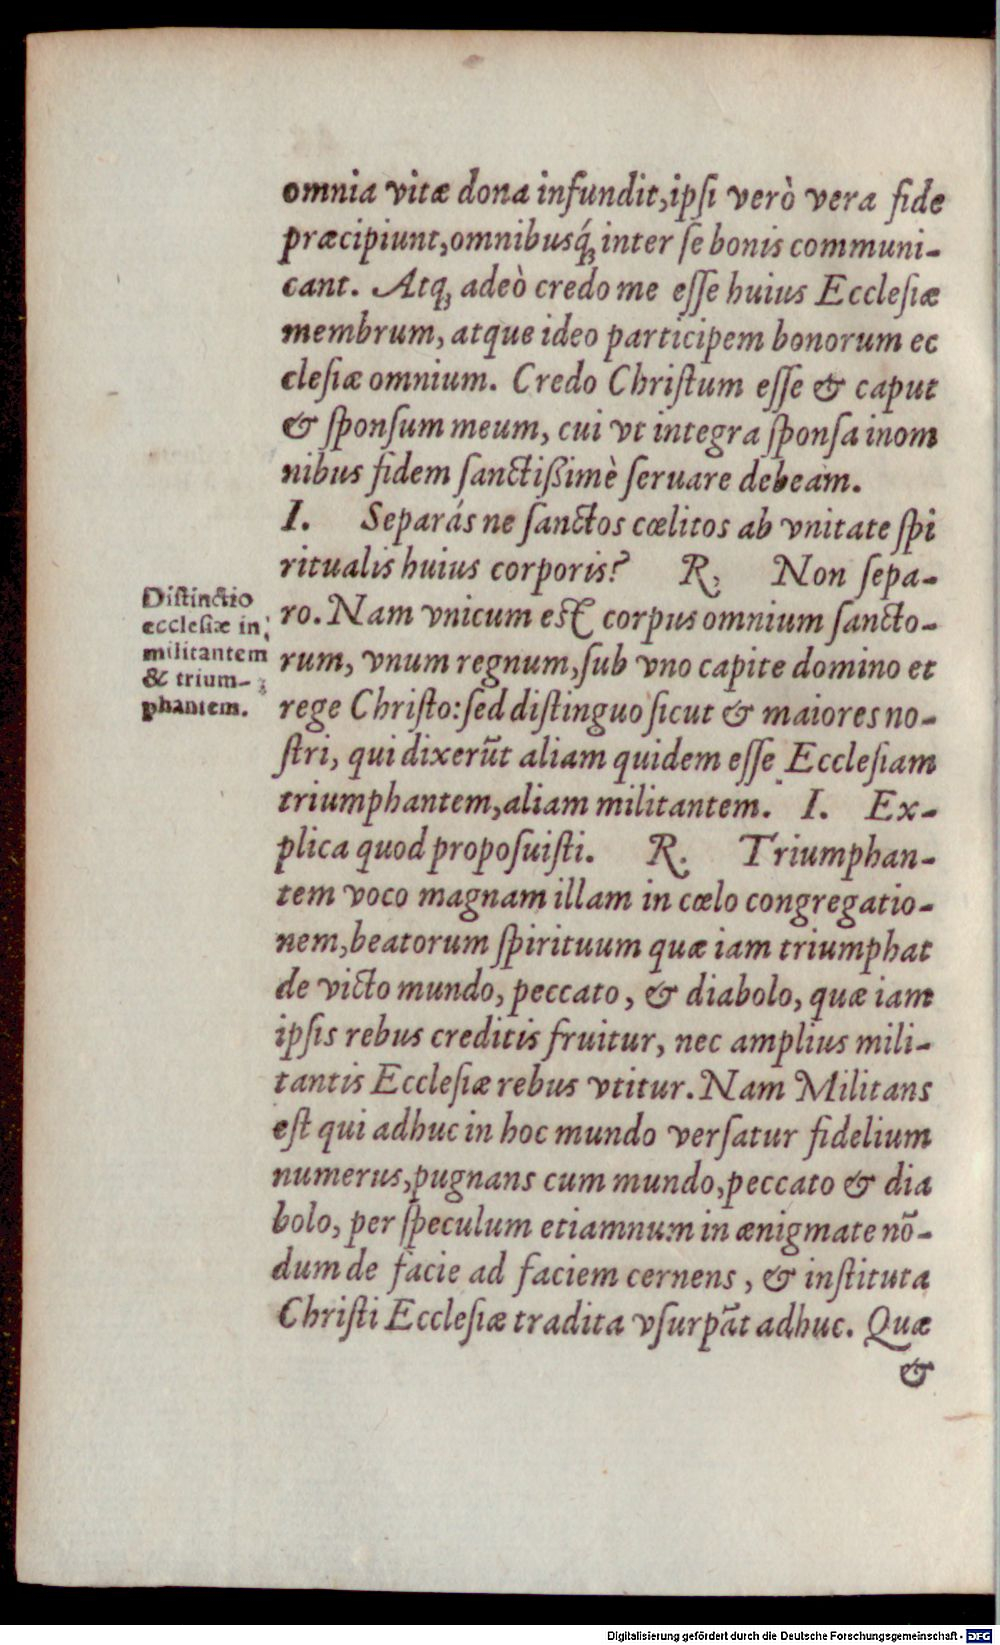 omnia vitæ dona infundit, ipſi verò vera fide
præcipiunt, omnibusq́ꝫ inter ſe bonis communi-
cant. Atqꝫ adeò credo me eſſe huius Eccleſiæ
membrum, atque ideo participem bonorum ec
cleſiæ omnium. Credo Chriſtum eſſe & caput
& ſponſum meum, cui vt integra ſponſa in om
nibus fidem ſanctißimè ſeruare debeam.
I. Separás ne ſanctos cœlitos ab vnitate ſpi
ritualis huius corporis? R. Non ſepa-
ro. Nam vnicum est corpus omnium ſancto-
rum, vnum regnum, ſub vno capite domino et
rege Chriſto: ſed diſtinguo ſicut & maiores no-
ſtri, qui dixerūt aliam quidem eſſe Eccleſiam
triumphantem, aliam militantem. I. Ex-
plica quod propoſuiſti. R. Triumphan-
tem voco magnam illam in cœlo congregatio-
nem, beatorum ſpirituum quæ iam triumphat
de victo mundo, peccato, & diabolo, quæ iam
ipſis rebus creditis fruitur, nec amplius mili-
tantis Eccleſiæ rebus vtitur. Nam Militans
eſt qui adhuc in hoc mundo verſatur fidelium
numerus, pugnans cum mundo, peccato & dia
bolo, per ſpeculum etiamnum in ænigmate nō-
dum de facie ad faciem cernens, & inſtituta
Chriſti Eccleſiæ tradita vſurpāt adhuc. Quæ
&
Diſtinctio
eccleſiæ in
militantem
& trium-
phantem.
Digitalisierung gefördert durch die Deutsche Forschungsgemeinschaft - DFG